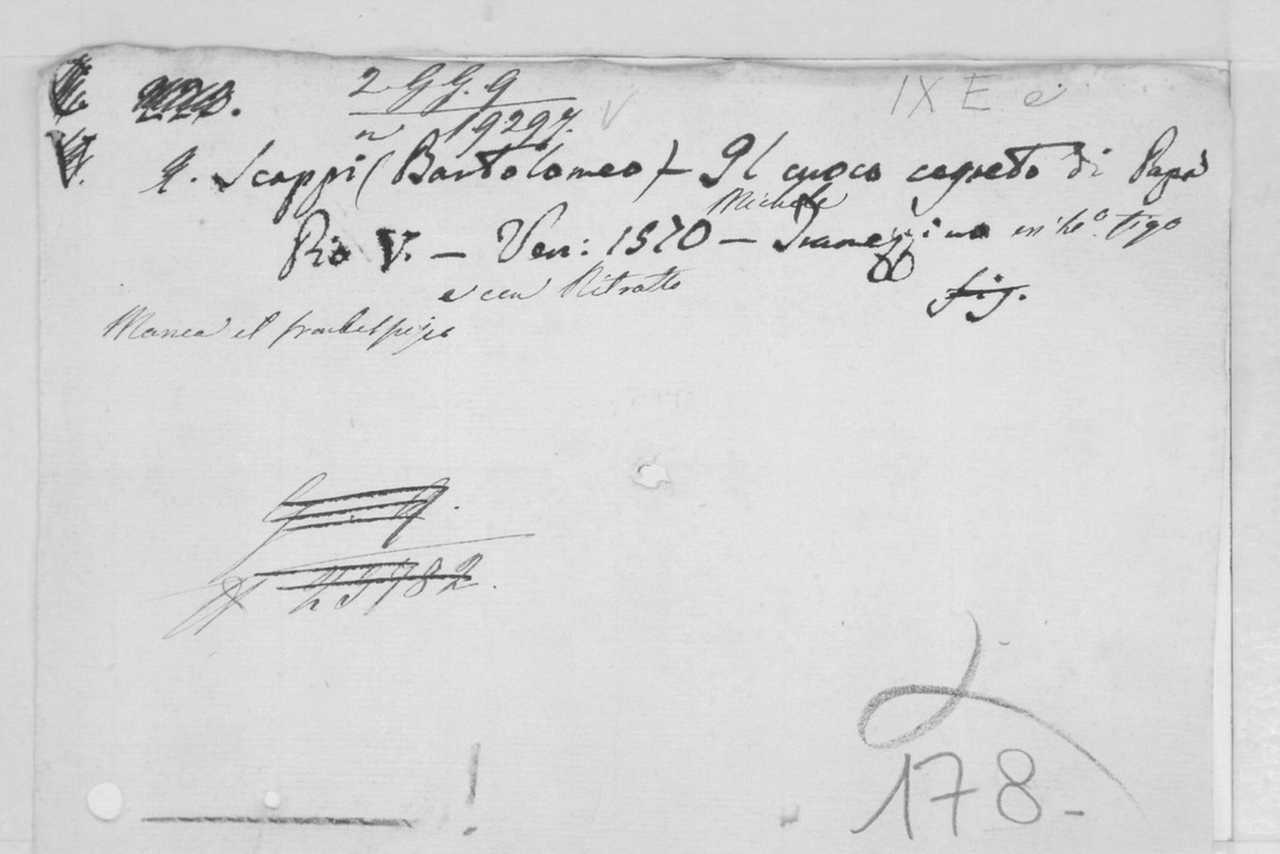 2 G G. 9
IX E e
n 19297.
q. Scappi (Bartolomeo) - Il cuoco segreto di Papa
Pio V. - Ven: 1570 - Michele Tramezzino in 4.o
e con Ritratto
fig.
Manca il frontespizio
G. 9.
23782.
!
178-